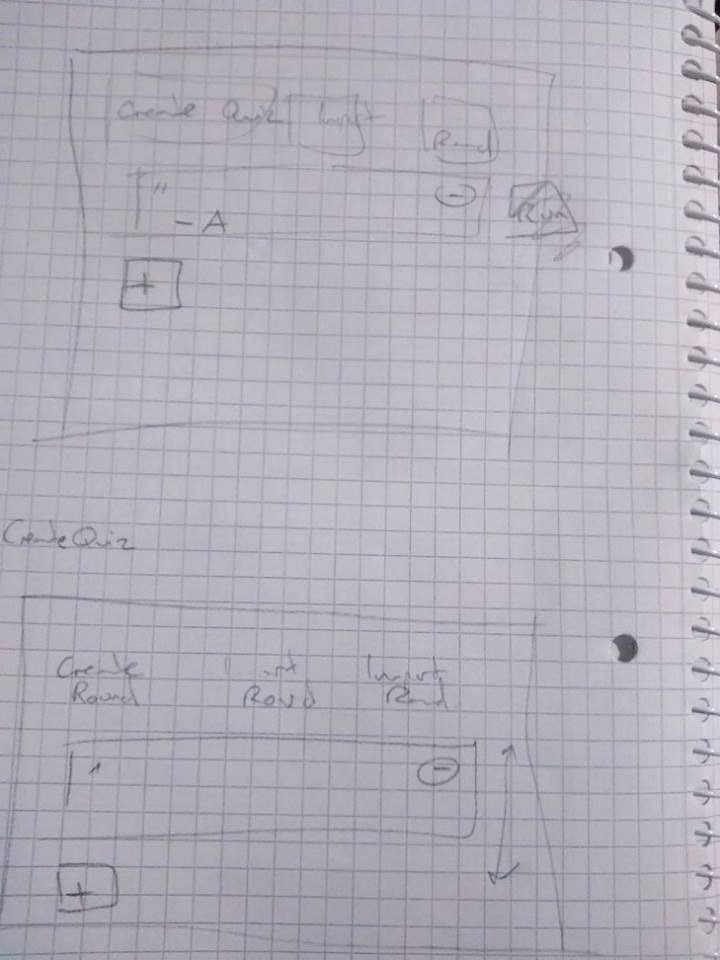 Create Quiz
Run
" - A
+
Create Quiz
Create Round
Round
Import Round
+